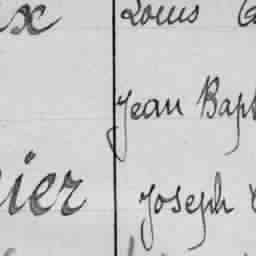 Louis
Jean Bapt
ier Joseph